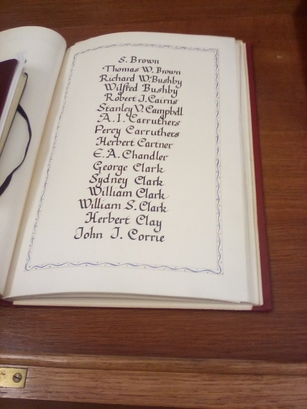 S. Brown
Thomas W. Brown
Richard W. Bushby
Wilfred Bushby
Robert J. Cairns
Stanley V. Campbell
A. I. Carruthers
Percy Carruthers
Herbert Cartner
E. A. Chandler
George Clark
Sydney Clark
William Clark
William S. Clark
Herbert Clay
John J. Corrie